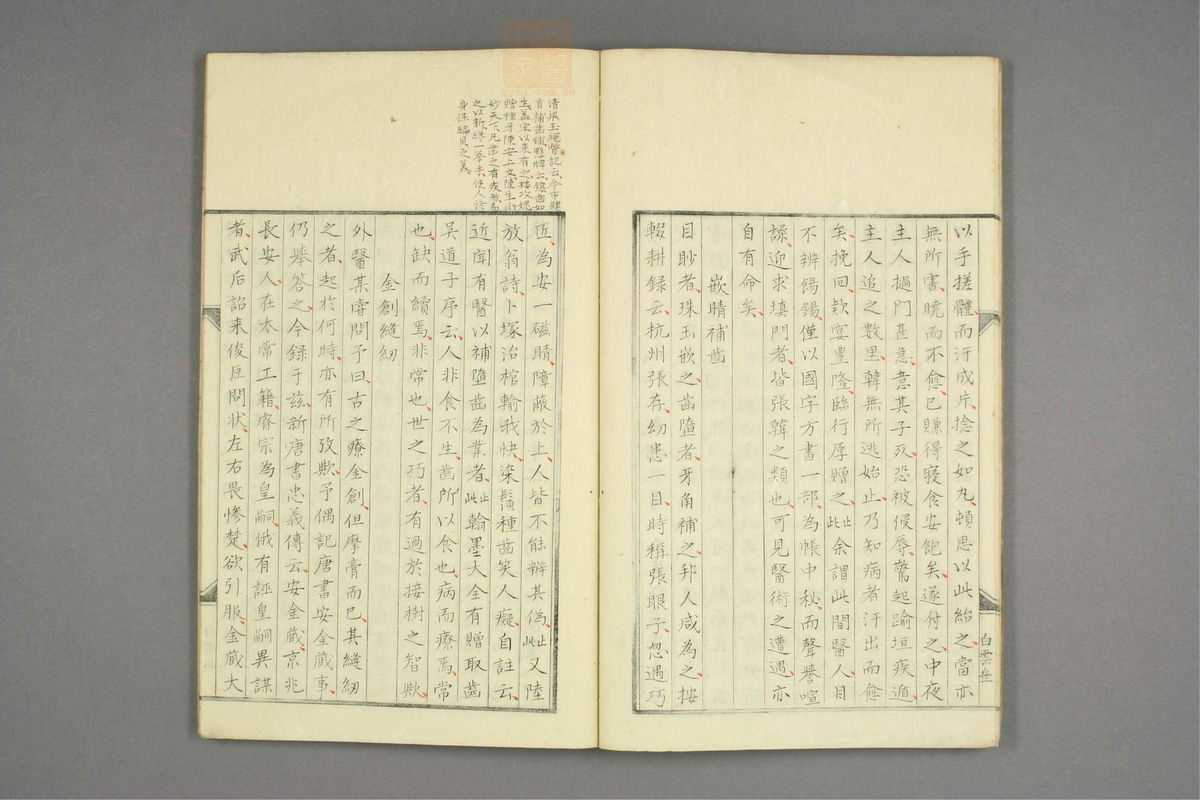 以手搓體而汗成片捻之如丸頓思以此紿之當亦
無所害曉而不愈已賺得寢食安飽矣遂付之中夜
主人撾門甚急意其子死恐被侵辱驚起踰垣疾遁
主人追之數里韓無所逃始止乃知病者汗出而愈
矣挽回欵宴豊隆臨行厚贈之此止余謂此間醫人目
不辨餳錫僅以國字方書一部為帳中秘而聲譽喧
譟迎求填門者皆張韓之類也可見醫術之遭遇亦
自有命矣
嵌睛補齒
目眇者珠玉嵌之齒墮者牙角補之邦人咸為之按
輟耕録云杭州張存幼患一目時稱張眼子忽遇巧
白雲
清梁玉繩瞥記云今市肆
有補齒鋪懸牌云鑲齒如
生蓋宋以来有之樓攻媿
贈種牙陳安上文陳生術
妙天下凡齒之有疾者易
之以新一舉手使人終
身保編貝之美
匠為安一磁睛障蔽於上人皆不能辨其偽此止又陸
放翁詩卜塚治棺輸我快染鬚種齒笑人癡自註云
近聞有醫以補墮齒為業者此止翰墨大全有贈取齒
吳道子序云人非食不生齒所以食也病而療焉常
也缺而續焉非常也世之巧者有過於接樹之智歟
金創縫紉
外醫某嘗問予曰古之療金創但摩膏而已其縫紉
之者起於何時亦有所攷歟予偶記唐書安金藏事
仍擧答之今録于玆新唐書忠義傳云安金藏京兆
長安人在太常工籍睿宗為皇嗣俄有誣皇嗣異謀
者武后詔来俊臣問状左右畏慘楚欲引服金藏大